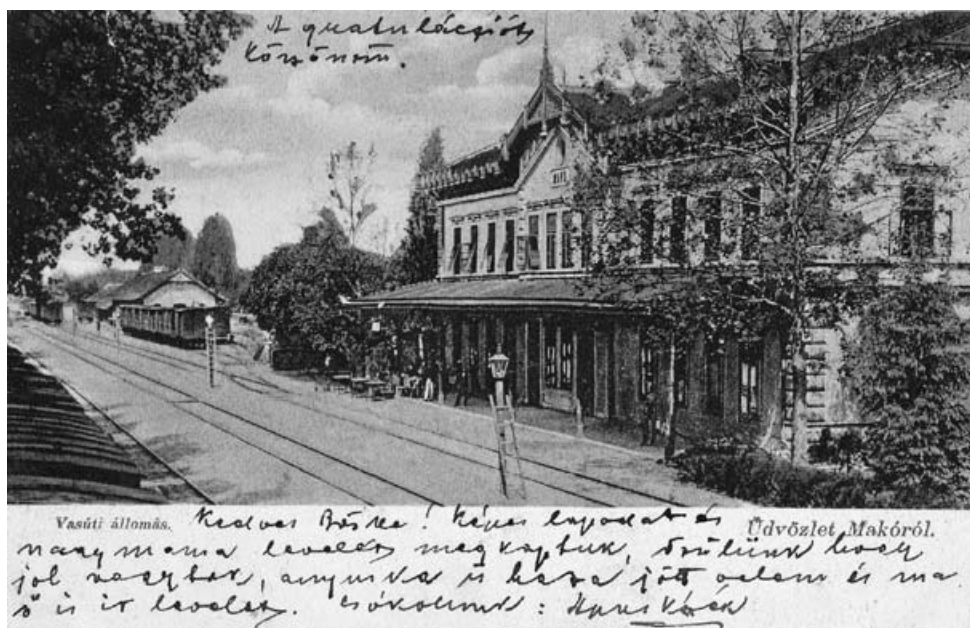 A gratulációt
köszönöm.
Vasúti állomás.
Üdvözlet Makóról.
Kedves Böske! Képes lapodat és
nagymama levelét megkaptuk, örülünk hogy
jól vagytok, anyuska is haza jött velem és ma
ő is ír levelet. Csókolunk: